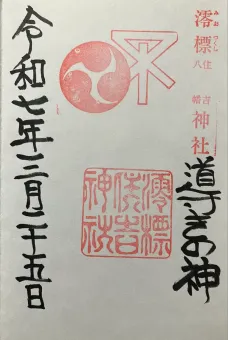 澪標
みおつくし
住吉
八幡
神社
導きの神
澪標
住吉
神社
令和七年三月二十五日